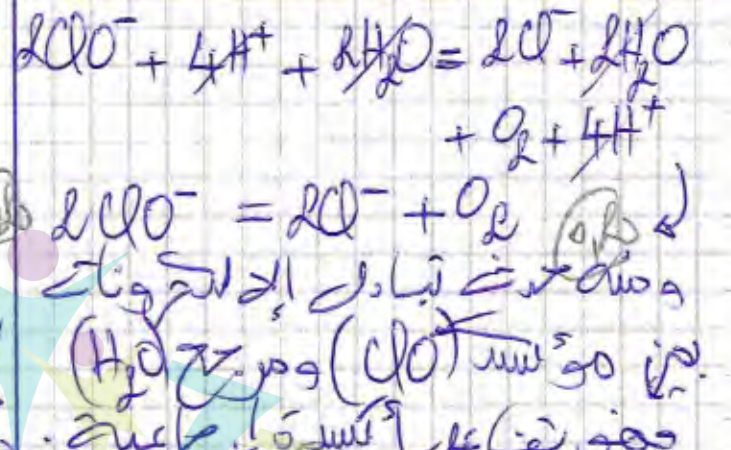 2ClO⁻ + 4H⁺ + 2H₂O = 2Cl⁻ + 2H₂O
+ O₂ + 4H⁺
2ClO⁻ = 2Cl⁻ + O₂ 0,25
ومنه حدث تبادل إلكترونات
بين مؤكسد (ClO⁻) ومرجع (H₂O)
فهو تفاعل أكسدة إرجاعية.